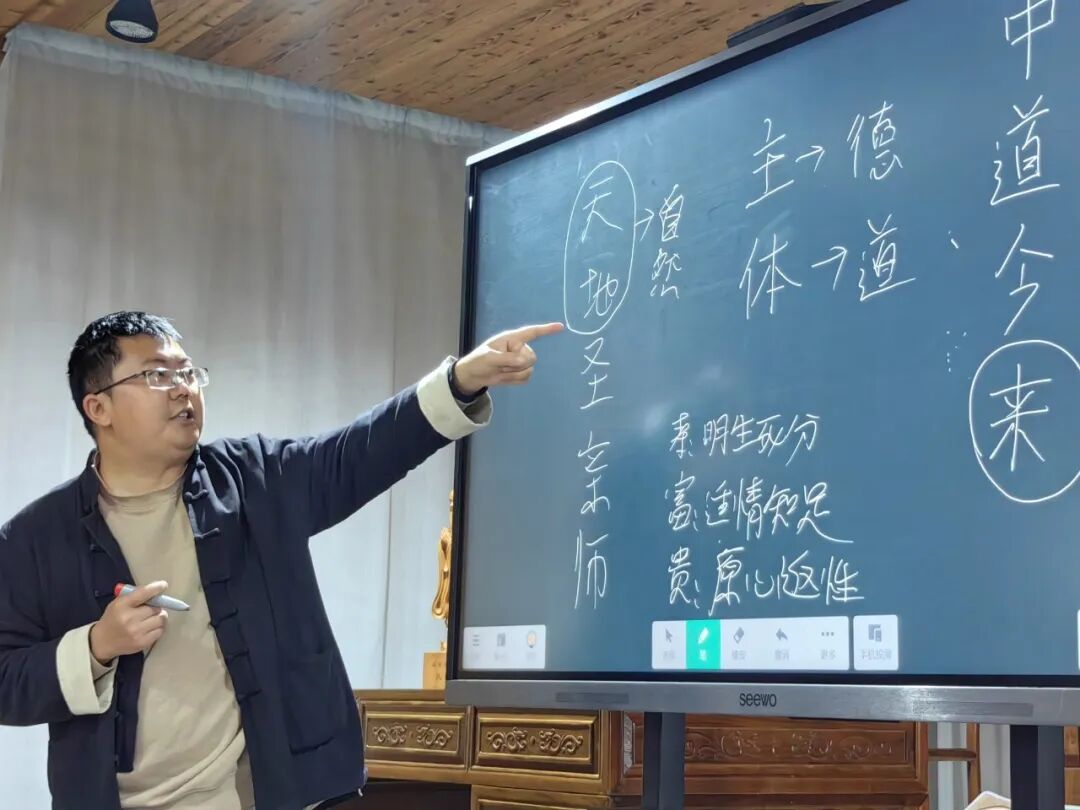 中道今来
主→德
体→道
天地→自然
圣亲师
明生死分
富:适情知足
贵:原心返性
seewo
笔
更多
手机投屏